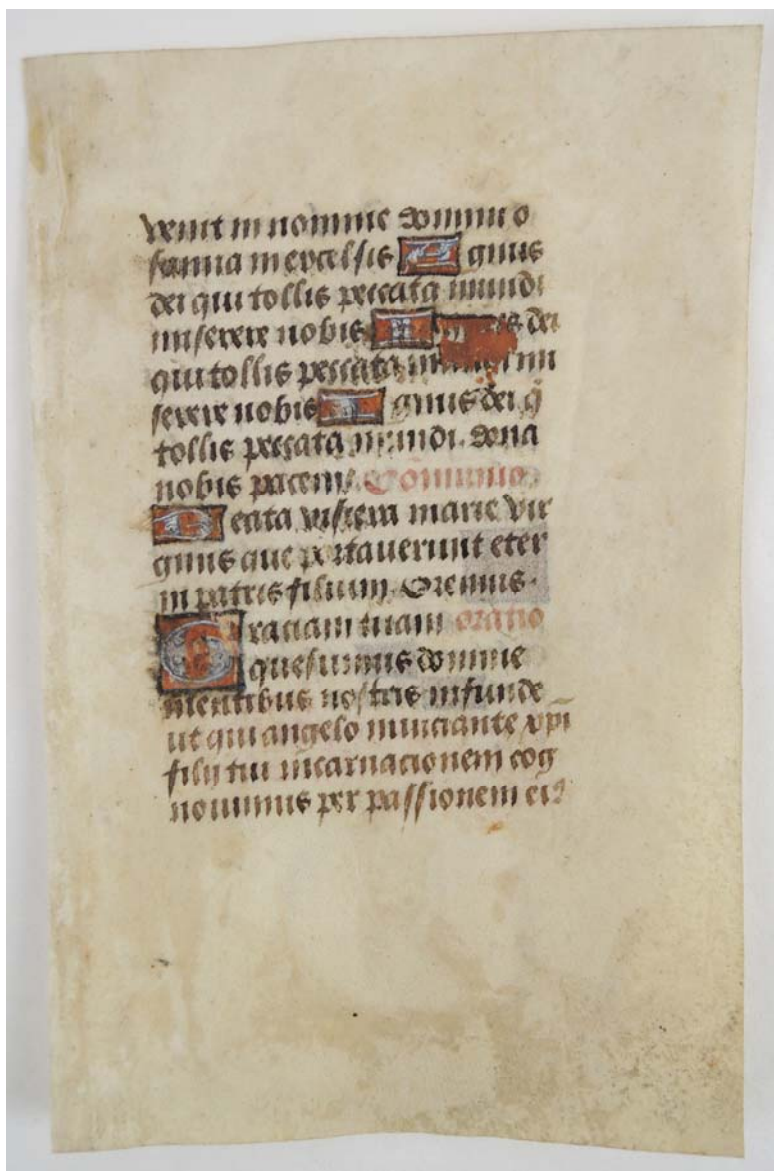 venit in nomine domini o
sanna in excelsis Agnus
dei qui tollis peccata mundi
miserere nobis Agnus dei
qui tollis peccata mundi mi
serere nobis Agnus dei q̄
tollis peccata mundi. dona
nobis pacem. Comunio
Beata viscera marie vir
ginis que portaverunt eter
ni patris filium. Oremus.
Graciam tuam oracio
quesumus domine
mentibus nostris infunde
ut qui angelo nunciante xp̄i
filii tui incarnacionem cog
novimus per passionem eiꝰ